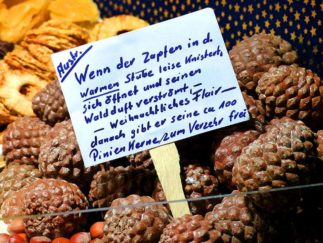 Austr.
Wenn der Zapfen in d.
warmen Stube leise knistert,
sich öffnet und seinen
Waldduft verströmt,
- Weihnachtliches Flair -
danach gibt er seine ca 100
Pinien Kerne zum Verzehr frei